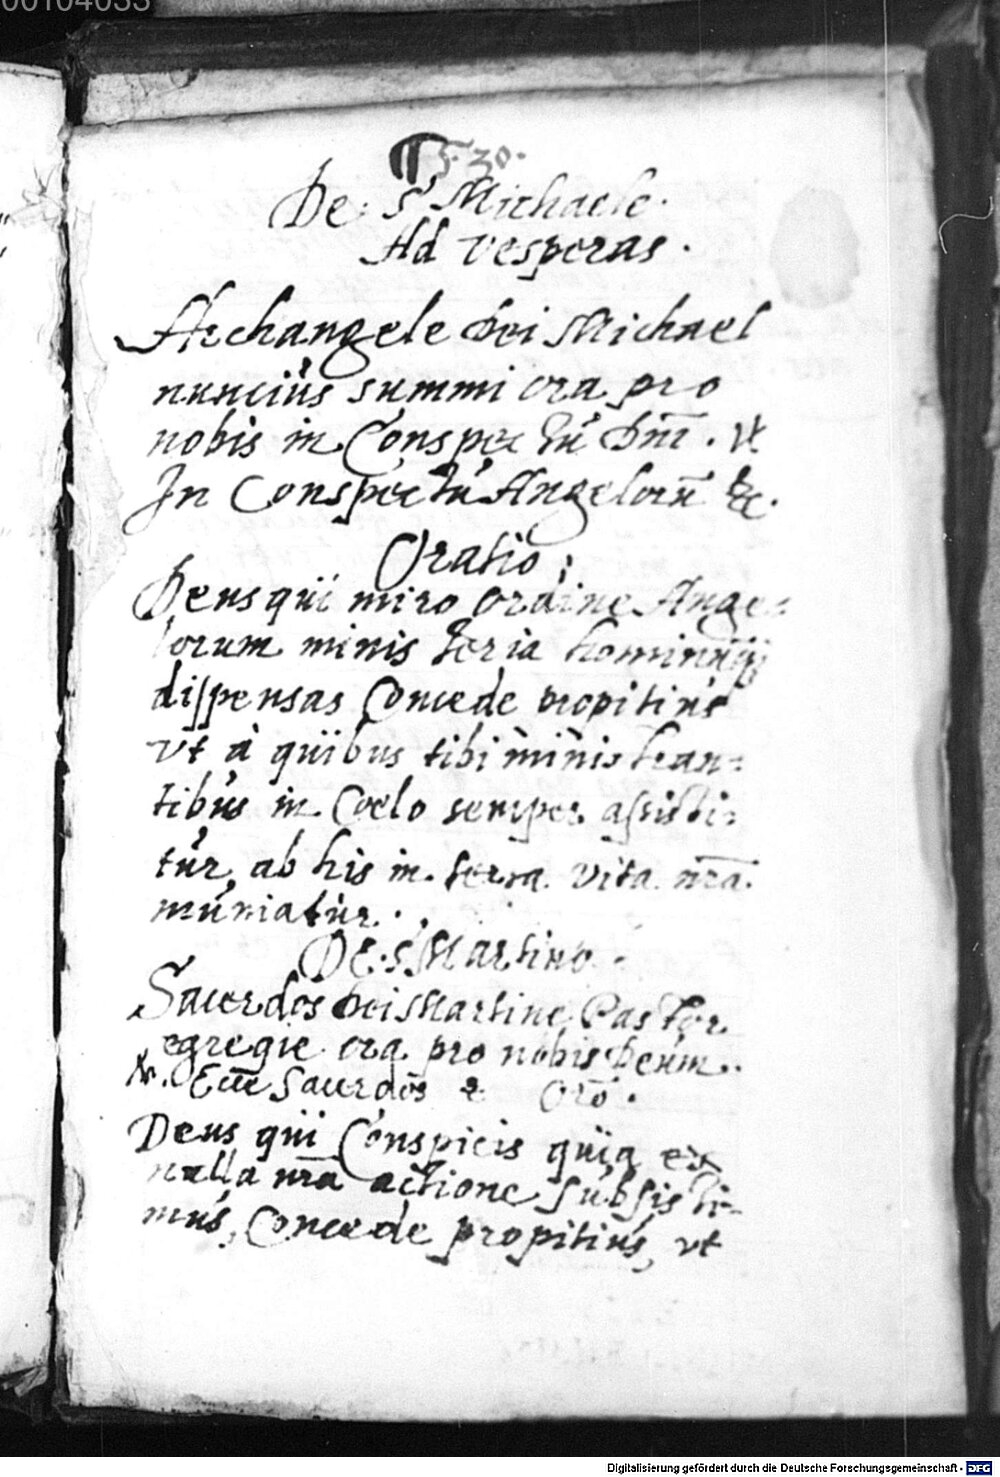 00104033
F. 30.
De: S Michaele.
Ad vesperas.
Archangele Dei Michael
nuncius summi ora pro
nobis in Conspectu Dn̄i. Vt
In Conspectu Angeloru̅ &c.
Oratio;
Deus qui miro ordine Ange-
lorum ministeria hominu̅q;
dispensas Concede propitius
vt à quibus tibi ministran-
tibus in Coelo semper assisti-
tur, ab his in terra vita nr̄a.
muniatur.
De: S Martino.
Sacerdos Dei Martine Pastor
egregie ora pro nobis Deum.
V. Ecce Sacerdos & Orō.
Deus qui Conspicis quia ex
nulla nr̄a actione subsisti-
mus, Concede propitius, vt
Digitalisierung gefördert durch die Deutsche Forschungsgemeinschaft - DFG